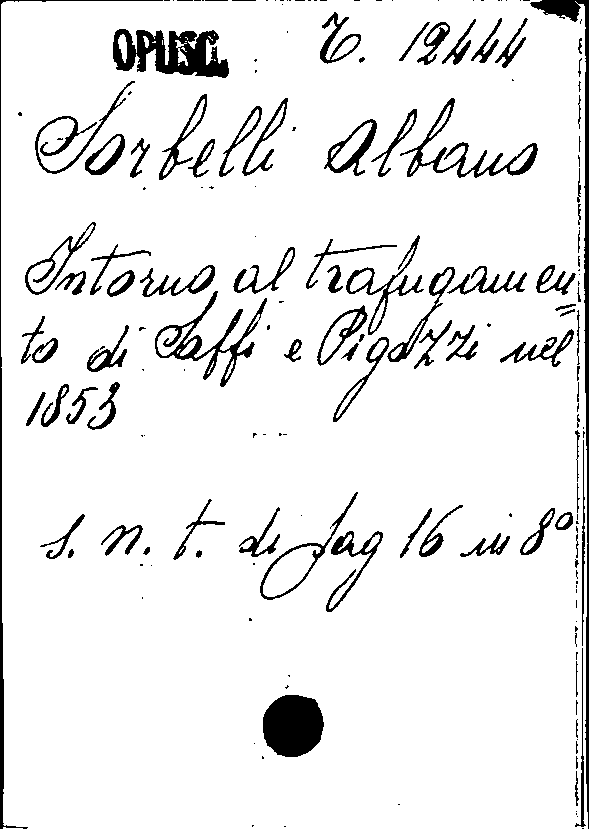 OPUSC. T. 12444
Sorbelli Albano
Intorno al trafugamen=
to di Saffi e Pigozzi nel
1853
s. n. t. di pag 16 in 8º